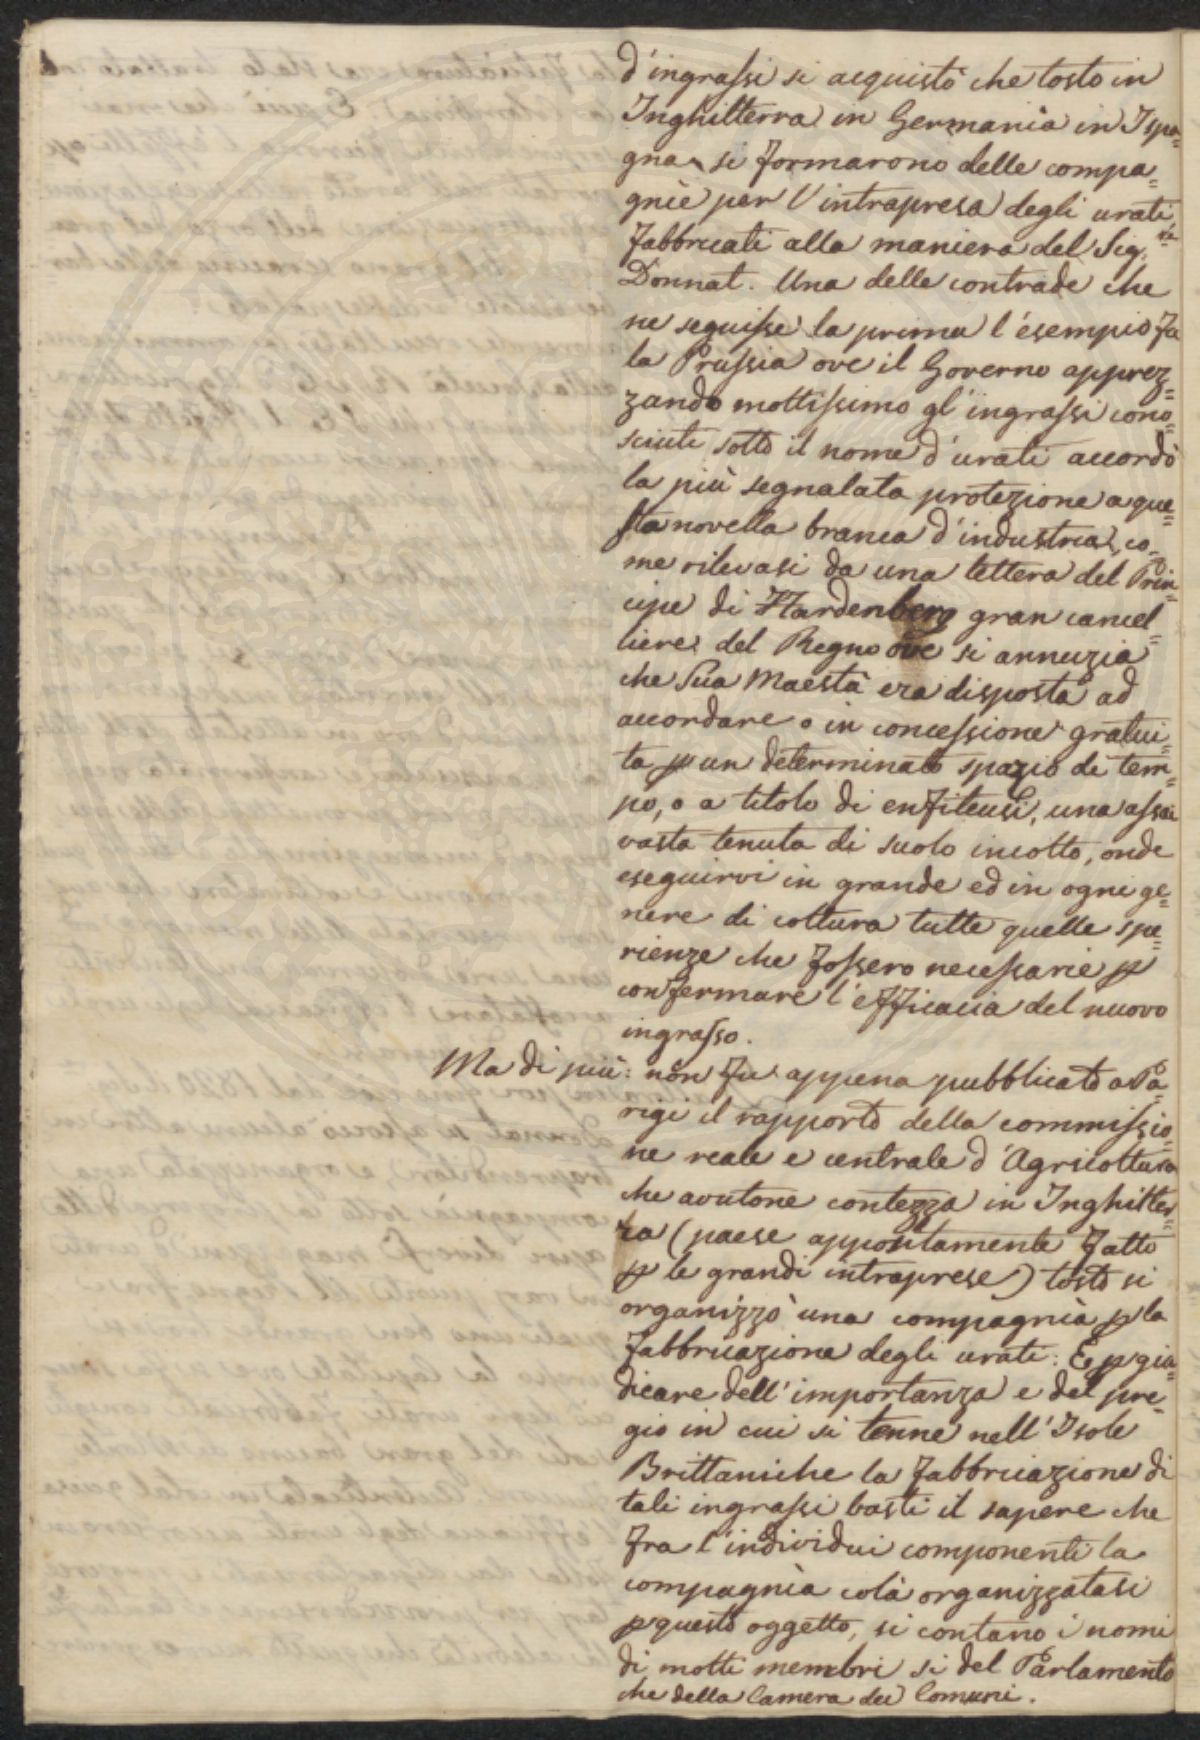 d'ingrassi si acquistò che tosto in
Inghilterra in Germania in Ispa=
gna si formarono delle compa=
gnie per l'intrapresa degli urati
fabbricati alla maniera del Sig.re
Donnat. Una delle contrade che
ne seguisse la prima l'esempio fu
la Prussia ove il Governo apprez=
zando moltissimo gl'ingrassi cono=
sciuti sotto il nome d'urati accordò
la più segnalata protezione a que=
sta novella branca d'industria, co=
me rilevasi da una lettera del Prin=
cipe di Hardenberg gran cancel=
liere del Regno ove si annuzia
che Sua Maestà era disposta ad
accordare o in concessione gratui=
ta p un determinato spazio di tem=
po, o a titolo di enfiteusi, una assai
vasta tenuta di suolo incolto, onde
eseguirvi in grande ed in ogni ge=
nere di coltura tutte quelle spe=
rienze che fossero necessarie p
confermare l'efficacia del nuovo
ingrasso.
Ma di più: non fu appena pubblicato a Pa=
rigi il rapporto della commissio=
ne reale e centrale d'Agricoltura
che avutone contezza in Inghilter=
ra (paese appositamente fatto
p le grandi intraprese) tosto si
organizzò una compagnia p la
fabbricazione degli urati: E p giu=
dicare dell'importanza e del pre=
gio in cui si tenne nell'Isole
Brittaniche la fabbricazione di
tali ingrassi basti il sapere che
fra l'individui componenti la
compagnia colà organizzatasi
p questo oggetto, si contano i nomi
di molti membri si del Parlamento
che della Camera dei Comuni.